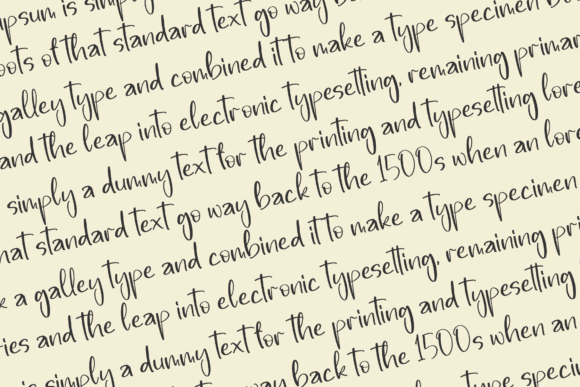 ipsum is simply
oots of that standard text go way
galley type and combined it to make a type specimen
and the leap into electronic typesetting, remaining
simply a dummy text for the printing and typesetting
hat standard text go way back to the 1500s when an
a galley type and combined it to make a type specimen
ries and the leap into electronic typesetting, remaining
is simply a dummy text for the printing and typesetting
way back to the 1500s when an
to make a type